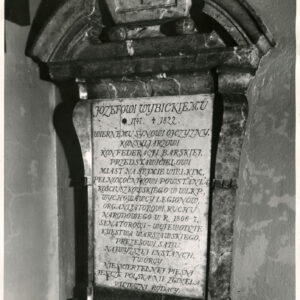 JÓZEFOWI WYBICKIEMU
1747. † 1822.
WIERNEMU SYNOWI OJCZYZNY,
KONSYLJARZOWI
KONFEDERACJI BARSKIEJ,
PRZEDSTAWICIELOWI
MIAST NA SEJMIE WIELKIM,
PEŁNOMOCNIKOWI POWSTANIA
KOŚCIUSZKOWSKIEGO W WLKP.
WYCHOWAWCY LEGIONÓW,
ORGANIZATOROWI RUCHU
NARODOWEGO W R. 1806 7,
SENATOROWI-WOJEWODZIE
KSIĘSTWA WARSZAWSKIEGO,
PREZESOWI SĄDU
NAJWYŻSZEJ INSTANCJI,
TWÓRCY
NIEŚMIERTELNEJ PIEŚNI
JESZCZE POLSKA NIE ZGINĘŁA
WDZIĘCZNI RODACY